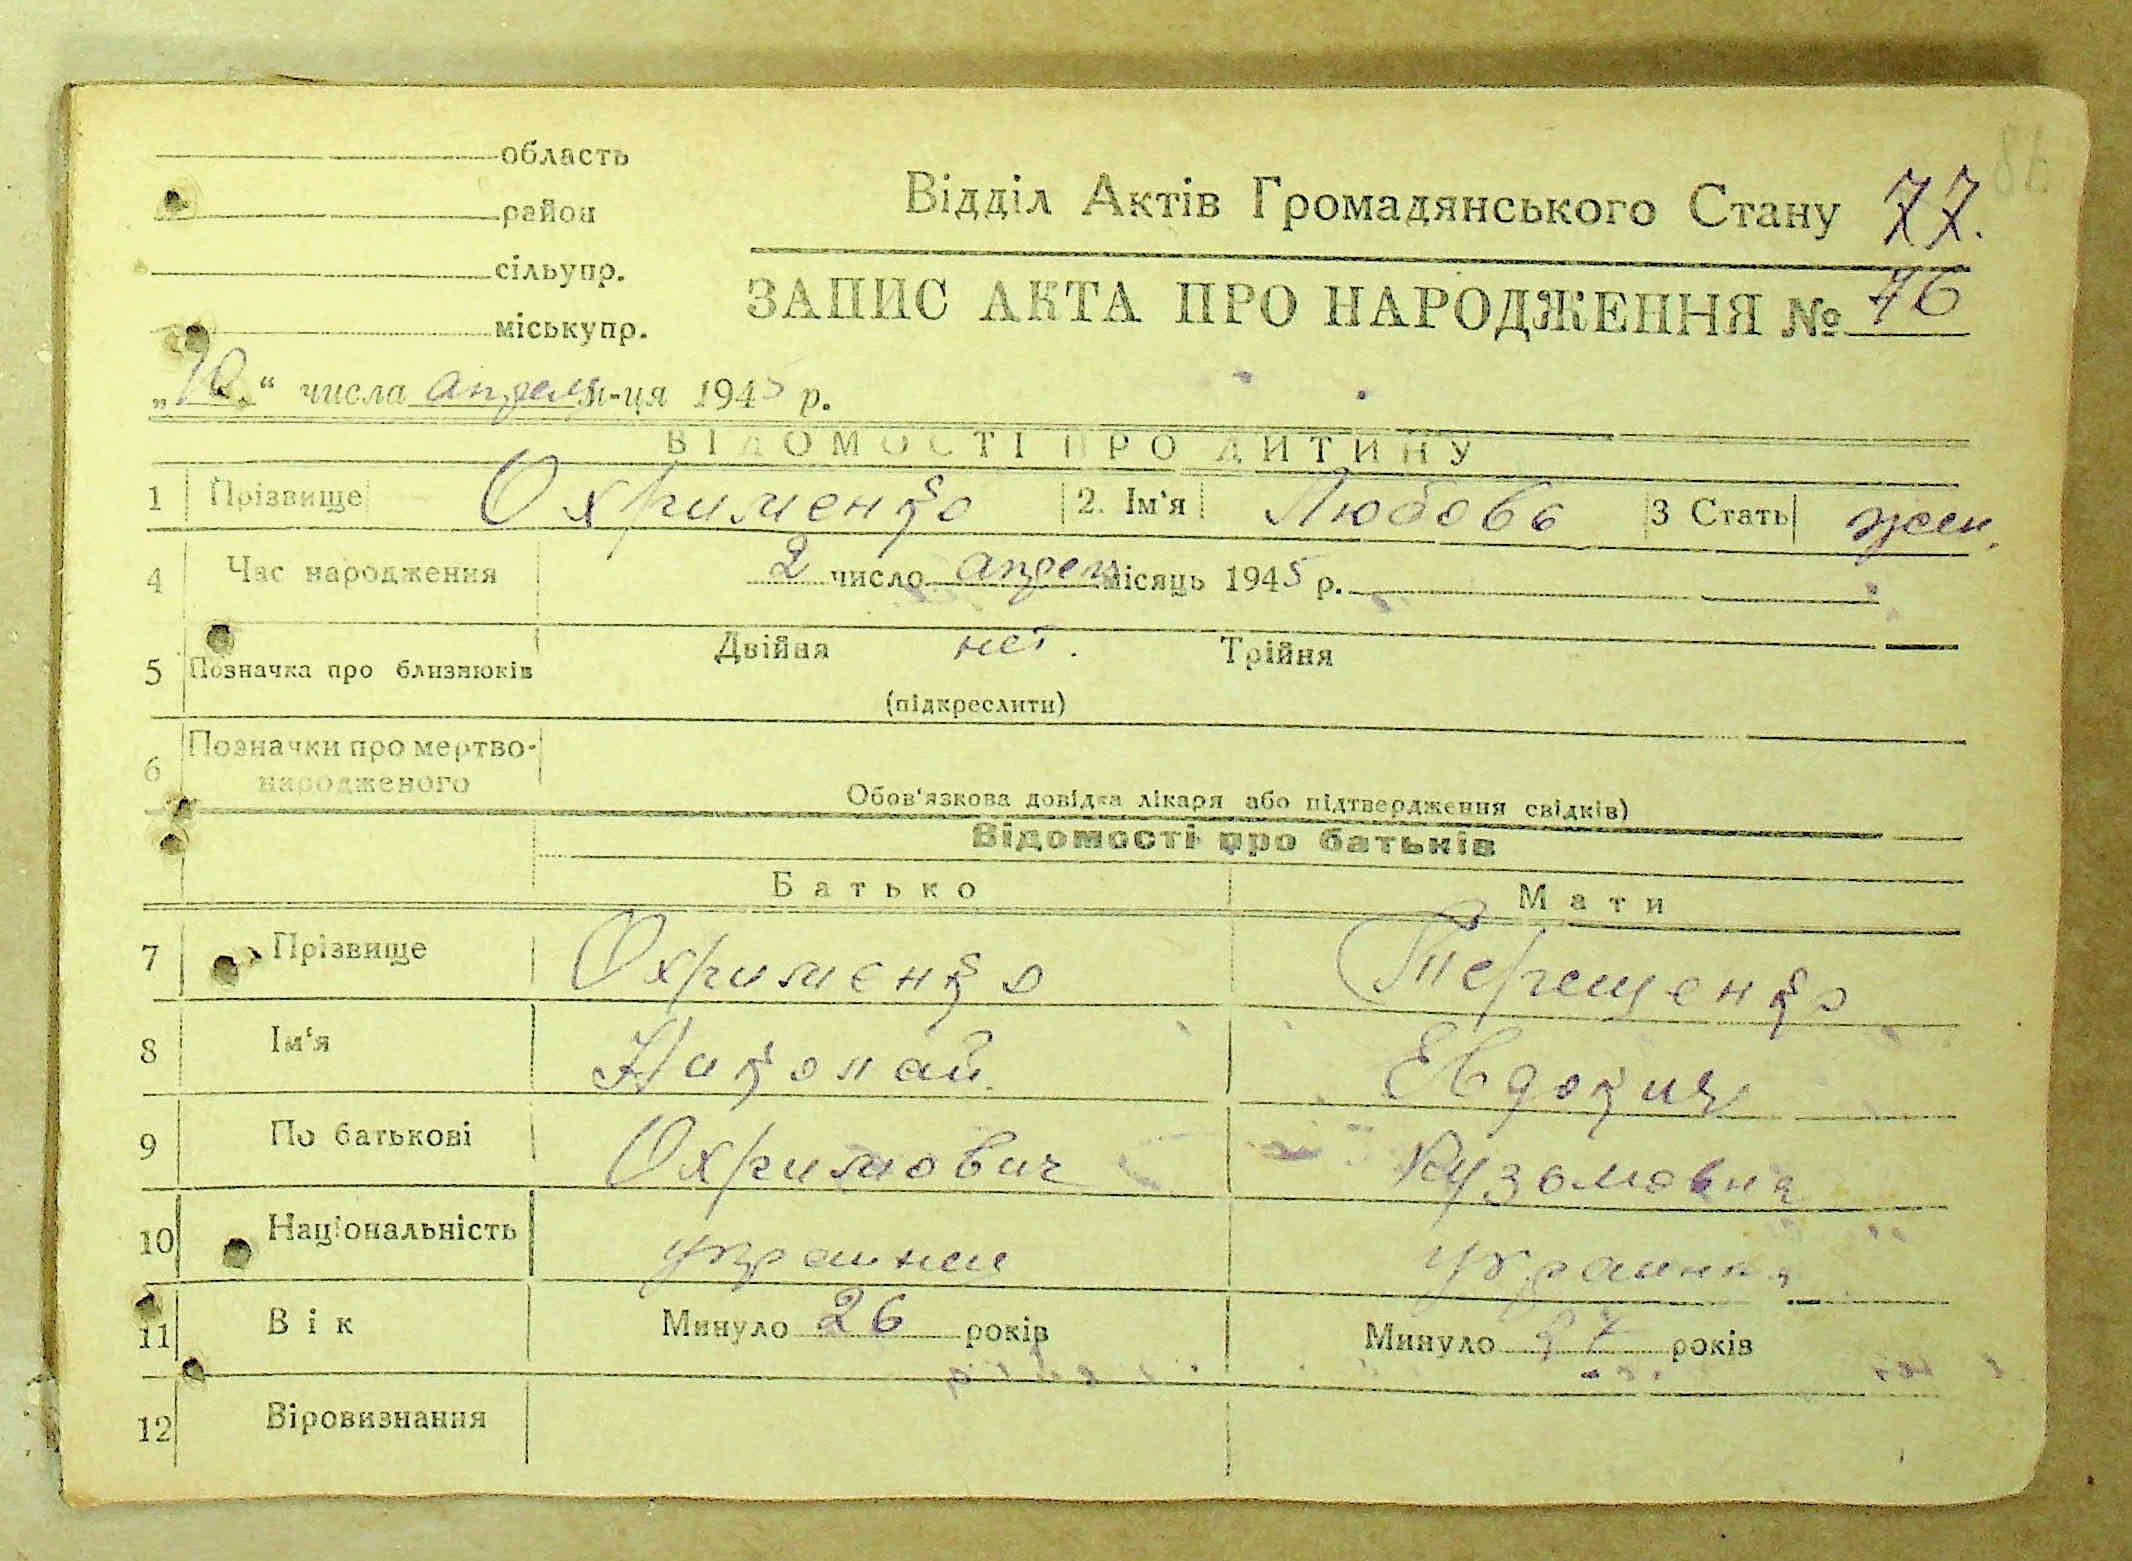 область
район
сільупр.
міськупр.
Відділ Актів Громадянського Стану 77.
ЗАПИС АКТА ПРО НАРОДЖЕННЯ № 76
„10.“ числа апрел м-ця 1945 р.
ВІДОМОСТІ ПРО ДИТИНУ
1 Прізвище Охрименко 2. Ім'я Любовь 3 Стать жен.
4 Час народження 2 число апрел місяць 1945 р.
5 Позначка про близнюків Двійня нет. Трійня
(підкреслити)
6 Позначки про мертво-
народженого
Обов'язкова довідка лікаря або підтвердження свідків)
Відомості про батьків
Батько Мати
7 Прізвище Охрименко Терещенко
8 Ім'я Николай Евдокия
9 По батькові Охримович Кузьмовна
10 Національність украинец украинка
11 Вік Минуло 26 років Минуло 27 років
12 Віровизнання